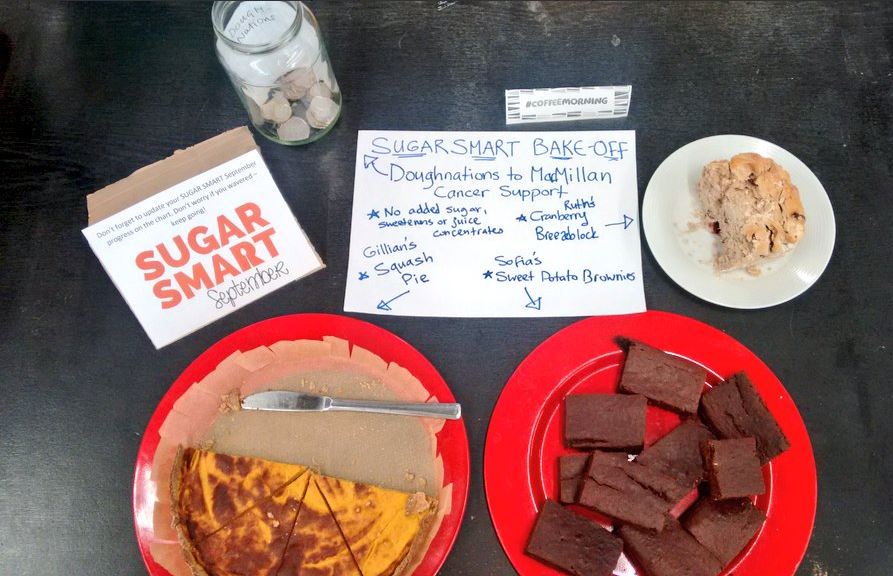 Dough
Nations
#COFFEEMORNING
Don't forget to update your SUGAR SMART September
progress on the chart. Don't worry if you wavered –
keep going!
SUGAR
SMART
September
SUGAR SMART BAKE-OFF
Doughnations to MacMillan
Cancer Support
* No added sugar,
sweeteners or juice
concentrates
* Ruth's
Cranberry
Breezeblock
Gillian's
* Squash
Pie
Sofia's
* Sweet Potato Brownies